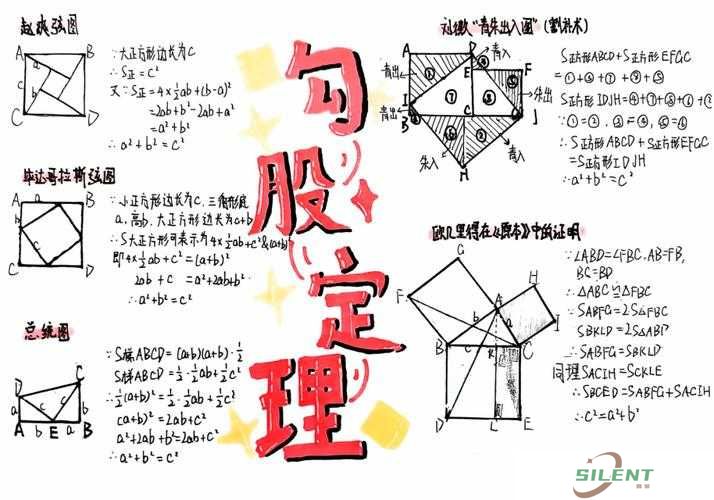 赵爽弦图
A
B
C
D
a
b
c
∵大正方形边长为c
∴S正=c²
又∵S正=4×½ab+(b-a)²
=2ab+b²-2ab+a²
=a²+b²
∴a²+b²=c²
毕达哥拉斯弦图
A
B
C
D
b
a
c
∵小正方形边长为c,三角形底
a,高b,大正方形边长为a+b
∴S大正方形可表示为4×½ab+c²&(a+b)²
即4×½ab+c²=(a+b)²
2ab+c =a²+2ab+b²
∴a²+b²=c²
总统图
D
C
A
E
B
a
b
c
c
b
a
∵S梯ABCD=(a+b)(a+b)·½
S梯ABCD=½·½ab+½c²
∴½(a+b)²=½·½ab+½c²
(a+b)²=2ab+c²
a²+2ab+b²=2ab+c²
∴a²+b²=c²
勾股定理
刘徽“青朱出入图”(割补术)
A
D
青入
E
F
青出
朱出
I
青出
B
C
J
朱入
青入
H
S正方形ABCD+S正方形EFGC
S正方形IDJH
∴S正方形ABCD+S正方形EFGC
=S正方形IDJH
∴a²+b²=c²
欧几里得在《原本》中的证明
G
H
F
A
I
b
a
B
c
K
C
D
L
E
∵∠ABD=∠FBC,AB=FB,
BC=BD
∴△ABC≌△FBC
∵SABFG=2S△FBC
SBKLD=2S△ABD
∴SABFG=SBKLD
同理SACIH=SCKLE
∴SBCED=SABFG+SACIH
∴c²=a²+b²
SILENT